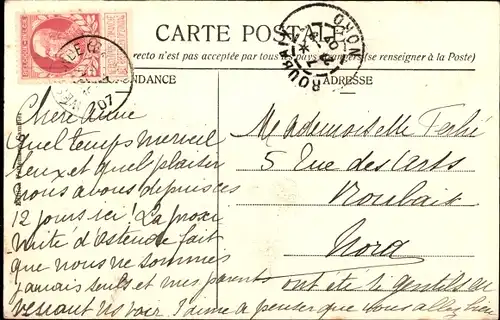 CARTE POSTALE
recto n'est pas acceptée par tous les pays étrangers (se renseigner à la Poste)
ADRESSE
ROUBAIX
07
Chère amie
Quel temps merveil
leux et quel plaisir
nous avons depuis ces
12 jours ici! La proxi
mité d'Ostende fait
que nous ne sommes
jamais seuls et mes parents
ont été si gentils en
venant us voir. J'aime à penser que vous allez bien
Mademoiselle
5 Rue des Arts
Roubaix
Nord